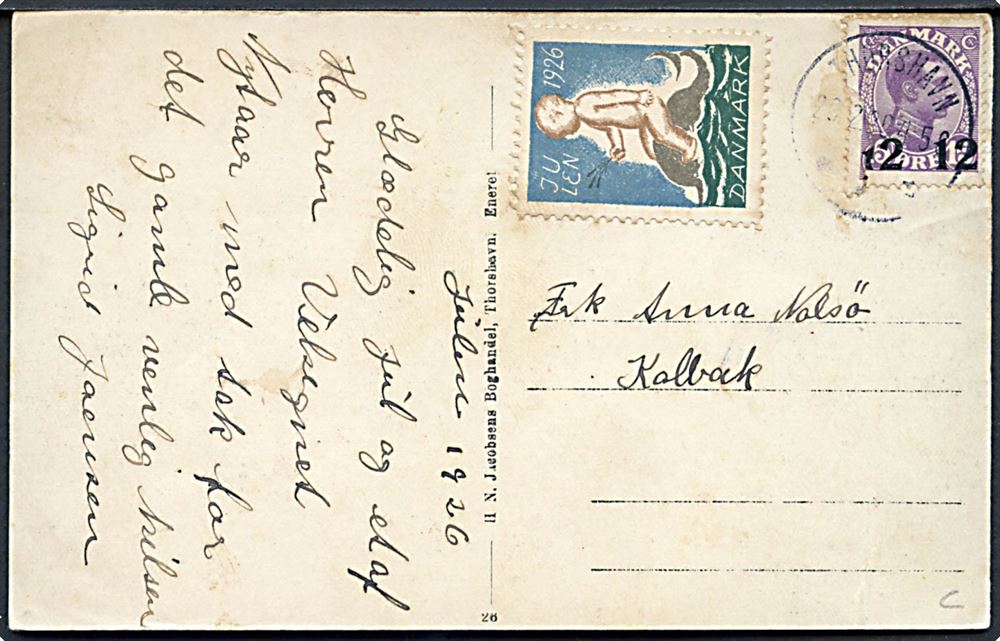 Julen 1926
Glædelig jul og et af
Herren Velsignet
Nytaar med tak for
det gamle venlig hilsen
Sigrid Joensen
H. N. Jacobsens Boghandel, Thorshavn. Eneret
26
JULEN 1926
DANMARK
DANMARK
15 ØRE 15
12 12
THORSHAVN
Frk Anna Nolsö
Kalbak